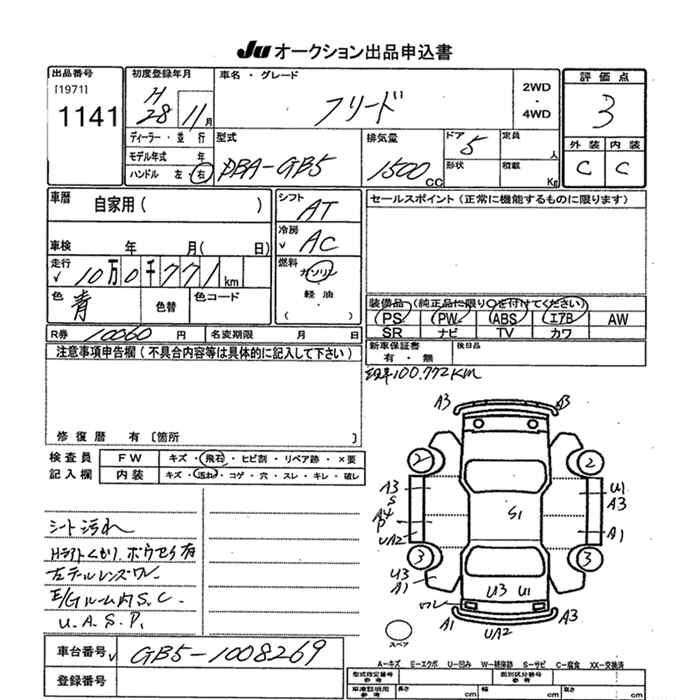 Ju オークション出品申込書
出品番号
[1971]
1141
初度登録年月
H
28 11月
車名・グレード
フリード
2WD
・
4WD
評価点
3
外装 内装
C C
ディーラー・並行
モデル年式 年
ハンドル 左 右
型式
DBA-GB5
排気量
1500
CC
ドア
5
形状
定員
人
積載
Kg
車歴
自家用( )
車検 年 月( 日)
走行
√ 10万0千771km
色
青
色替
色コード
シフト
AT
冷房
√ AC
燃料
ガソリン
軽油
( )
セールスポイント(正常に機能するものに限ります)
装備品(純正品に限り○を付けてください)
PS PW ABS エアB AW
SR ナビ TV カワ
新車保証書
有・無
後日品
R券 10060 円
名変期限 月 日
注意事項申告欄(不具合内容等は具体的に記入して下さい)
修復歴 有〔箇所 〕
100,772KM
検査員
記入欄
FW キズ・飛石・ヒビ割・リペア跡・×要
内装 キズ・汚れ・コゲ・穴・スレ・キレ・破レ
シート汚れ
Hライトくもり、ボウセイ有
左テールレンズワレ
E/Gルーム内S.C.
U.A.S.P.
A3
A3
2
2
A3
S
U1
A3
S1
UA2
A1
3
3
U3
A1
U3 U1
ワレ
A1
UA2
A3
スペア
車台番号
√ GB5-1008269
登録番号
A-キズ E-エクボ U-凹み W-補修跡 S-サビ C-腐食 XX-交換済
型式指定番号
参考
類別区分番号
参考
車庫証明用
参考
長さ cm 幅 cm 高さ cm